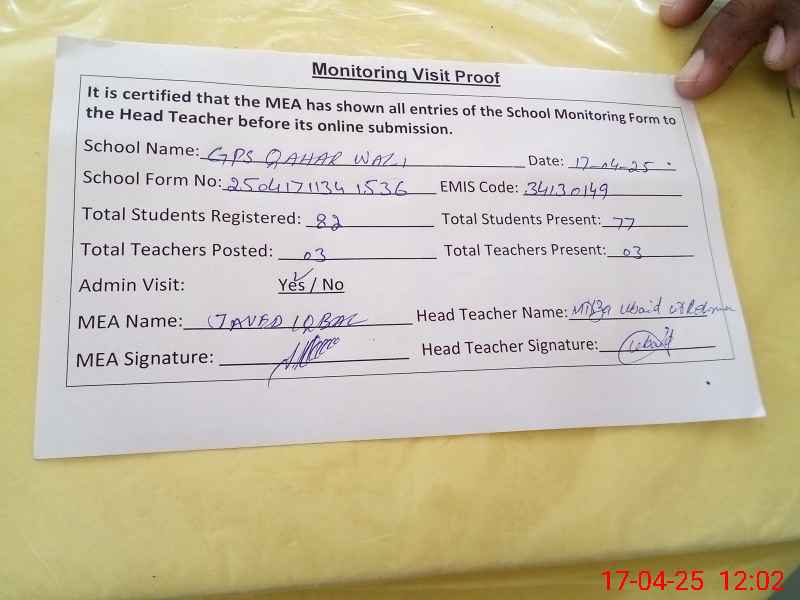 Monitoring Visit Proof
It is certified that the MEA has shown all entries of the School Monitoring Form to
the Head Teacher before its online submission.
School Name: GPS QAHAR WALI Date: 17-04-25
School Form No: 25041711341536 EMIS Code: 34130149
Total Students Registered: 82 Total Students Present: 77
Total Teachers Posted: 03 Total Teachers Present: 03
Admin Visit: Yes / No
MEA Name: JAVED IQBAL Head Teacher Name: Ubaid Ur Rehman
MEA Signature: Head Teacher Signature: Ubaid
17-04-25 12:02